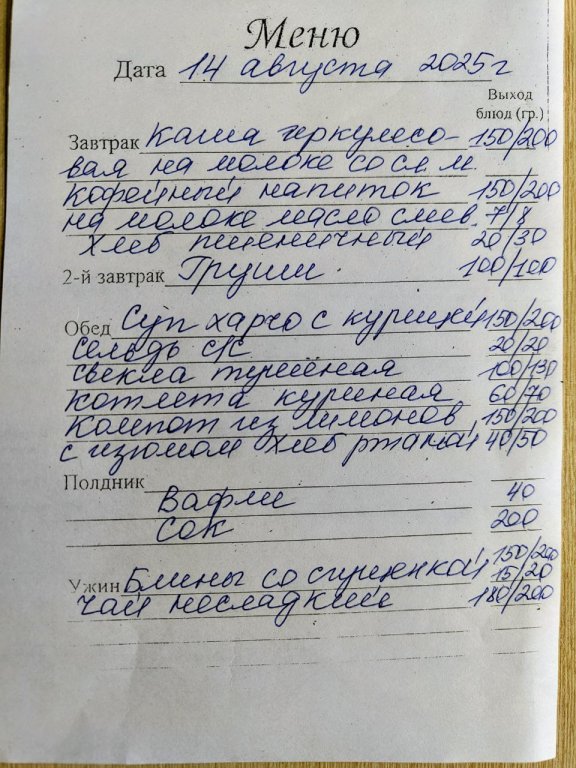 Меню
Дата 14 августа 2025г
Выход
блюд (гр.)
Завтрак Каша геркулесо- 150/200
вая на молоке со сл. м.
кофейный напиток 150/200
на молоке масло слив. 7/8
хлеб пшеничный 20/30
2-й завтрак Груши 100/100
Обед Суп харчо с курицей 150/200
Сельдь с/с 20/20
свекла тушёная 100/130
котлета куриная 60/70
Компот из лимонов 150/200
с изюмом хлеб ржаной 40/50
Полдник
Вафли 40
Сок 200
150/200
Ужин Блины со сгущенкой 15/20
Чай несладкий 180/200